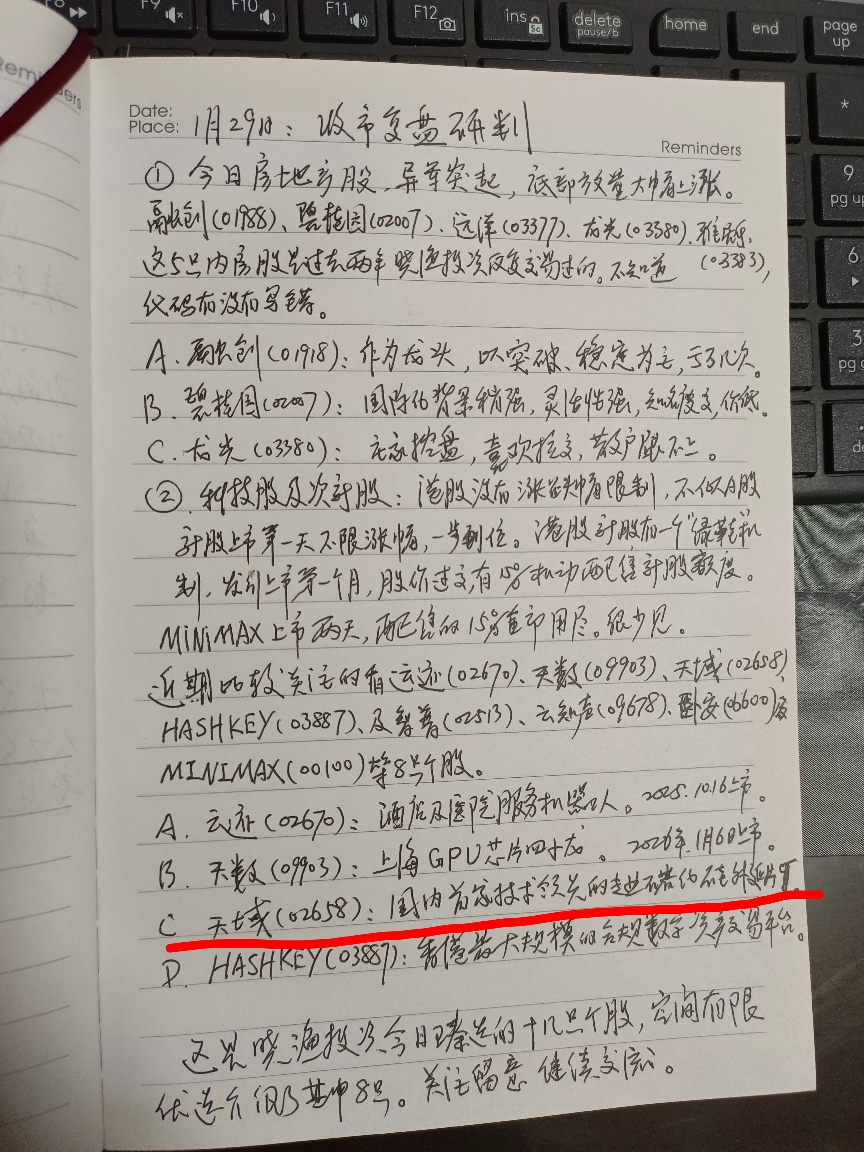 F9
F10
F11
F12
ins
Sc
delete
pause/b
home
end
page
up
*
9
pg up
6
3
pg
Reminders
Date:
Place: 1月29日：收市复盘研判
Reminders
① 今日房地产股，异军突起，底部放量大幅上涨。
融创(01988)、碧桂园(02007)、远洋(03377)、龙光(03380)、雅居乐(03383)，
这5只内房股是过去两年晓渔投资反复交易过的。不知道
代码有没有写错。
A. 融创(01918)：作为龙头，以突破、稳定为主，亏了几次。
B. 碧桂园(02007)：国际化背景稍强，灵活性强，知名度高，价低。
C. 龙光(03380)：庄家控盘，喜欢拉高，散户跟不上。
② 科技股及次新股：港股没有涨跌幅限制，不似A股
新股上市第一天不限涨幅，一步到位。港股新股有一个“绿鞋”机
制，发行上市第一个月，股价过高，有15%机动配售新股额度。
MINIMAX上市两天，配售的15%直即用尽。很少见。
近期比较关注的有云迹(02670)、天数(09903)、天域(02658)、
HASHKEY(03887)、及智谱(02513)、云知声(09678)、卧安(06600)及
MINIMAX(00100)等8只个股。
A. 云迹(02670)：酒店及医院服务机器人。2025.10.16上市。
B. 天数(09903)：上海GPU芯片四小龙。2026年1月6日上市。
C 天域(02658)：国内首家技术领先的专业碳化硅外延片
D. HASHKEY(03887)：香港最大规模的合规数字资产交易平台。
这是晓渔投资今日臻选的十几只个股，空间有限
优选介绍其中8只。关注留意 继续交流。